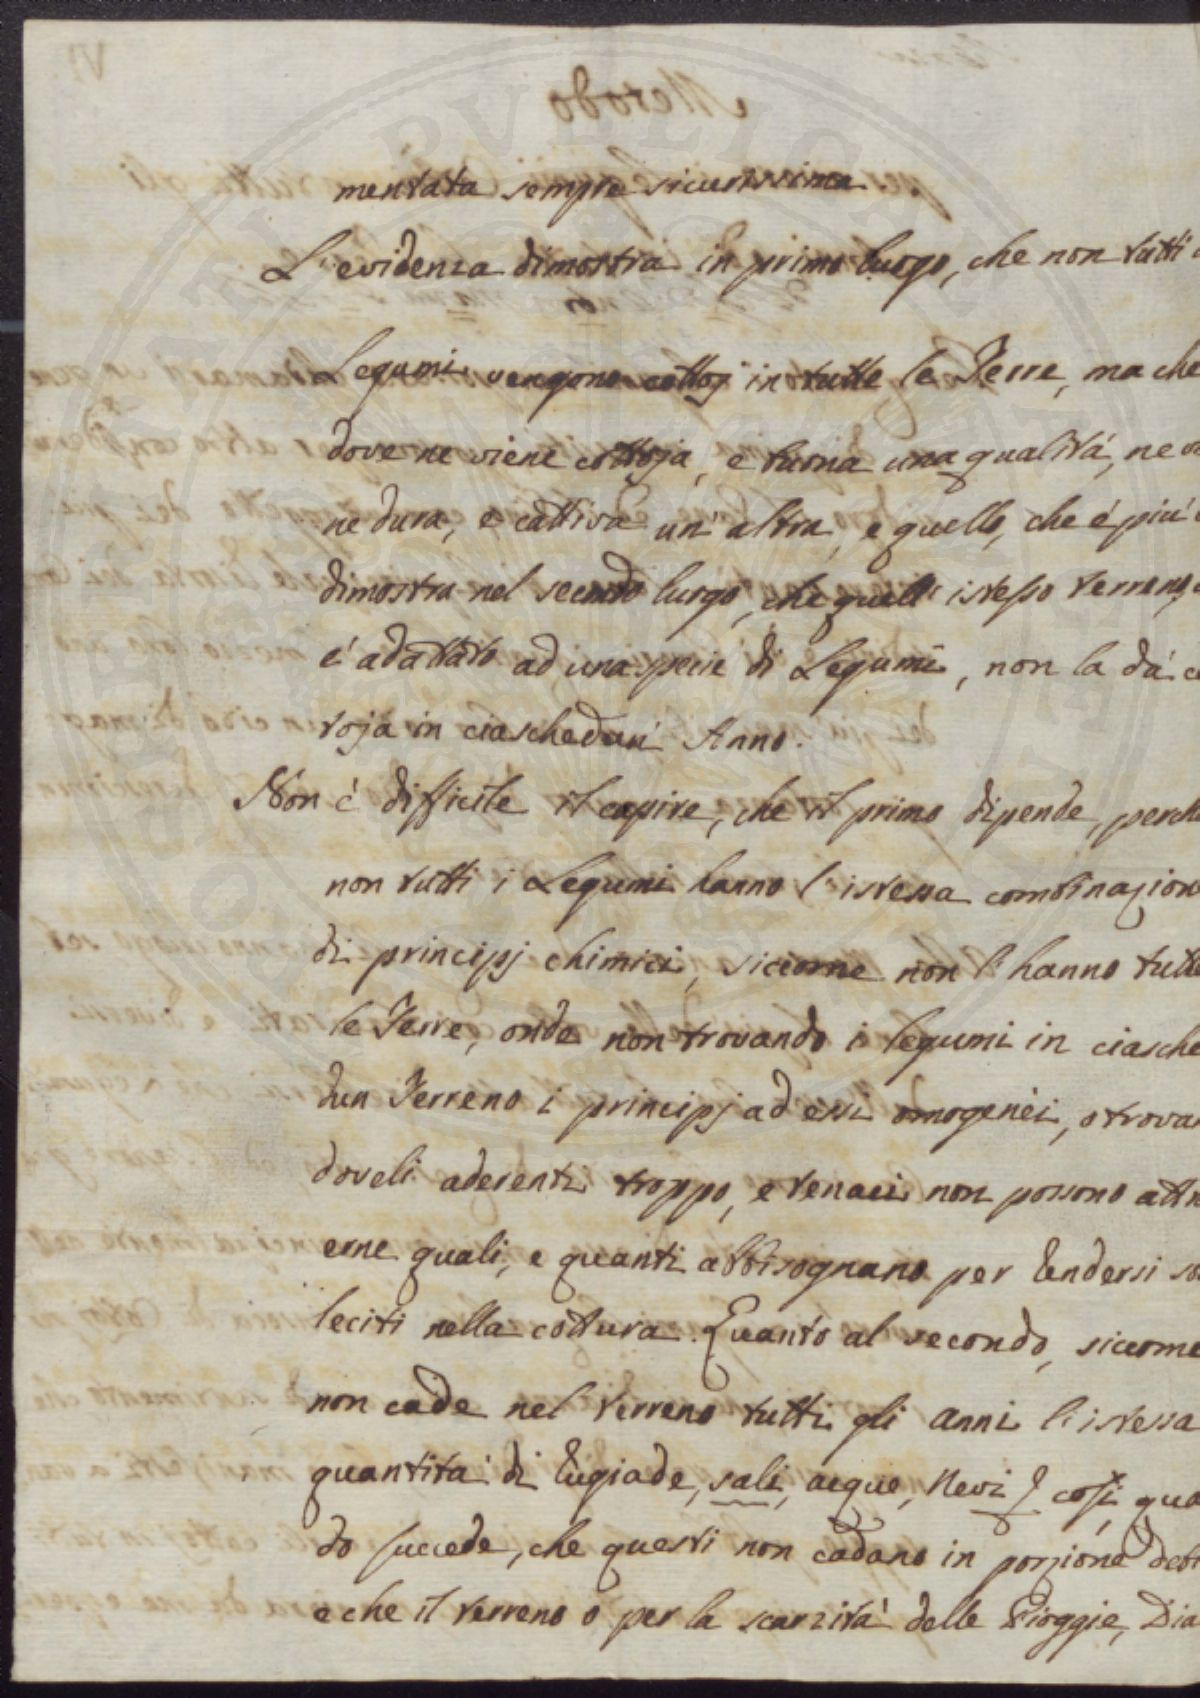 mentata sempre sicurissima.
L'evidenza dimostra in primo luogo, che non tutti i
Legumi vengono cottoj in tutte le Terre, ma che
dove ne viene cottoja, e buona una qualità, ne vie
ne dura, e cattiva un'altra, e quello, che é piú
dimostra nel secondo luogo, che quell'istesso terreno,
é adattato ad una specie di Legumi, non la dá cot
toja in ciaschedun' Anno.
Non é difficile il capire, che il primo dipende, perché
non tutti i Legumi hanno l'istessa combinazione
di principj chimici, siccome non l'hanno tutte
le Terre, onde non trovando i legumi in ciasche
dun Terreno i principj ad essi omogenei, o trovan
doveli aderenti troppo, e tenaci non possono attra
erne quali, e quanti abbisognano per rendersi sol
leciti nella cottura. Quanto al secondo, siccome
non cade nel terreno tutti gli anni l'istessa
quantità di rugiade, sali, acque, Nevi & così, qua
do succede, che questi non cadano in porzione debi
e che il terreno o per la scarzità delle Pioggie, Dia